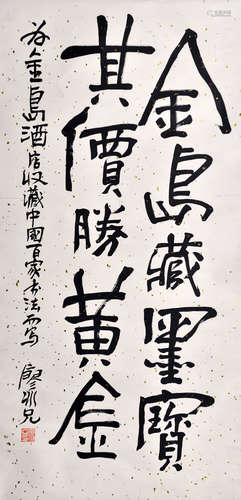 金島藏墨寶
其價勝黃金
为金島酒店收藏中國百家书法而写
廖冰兄